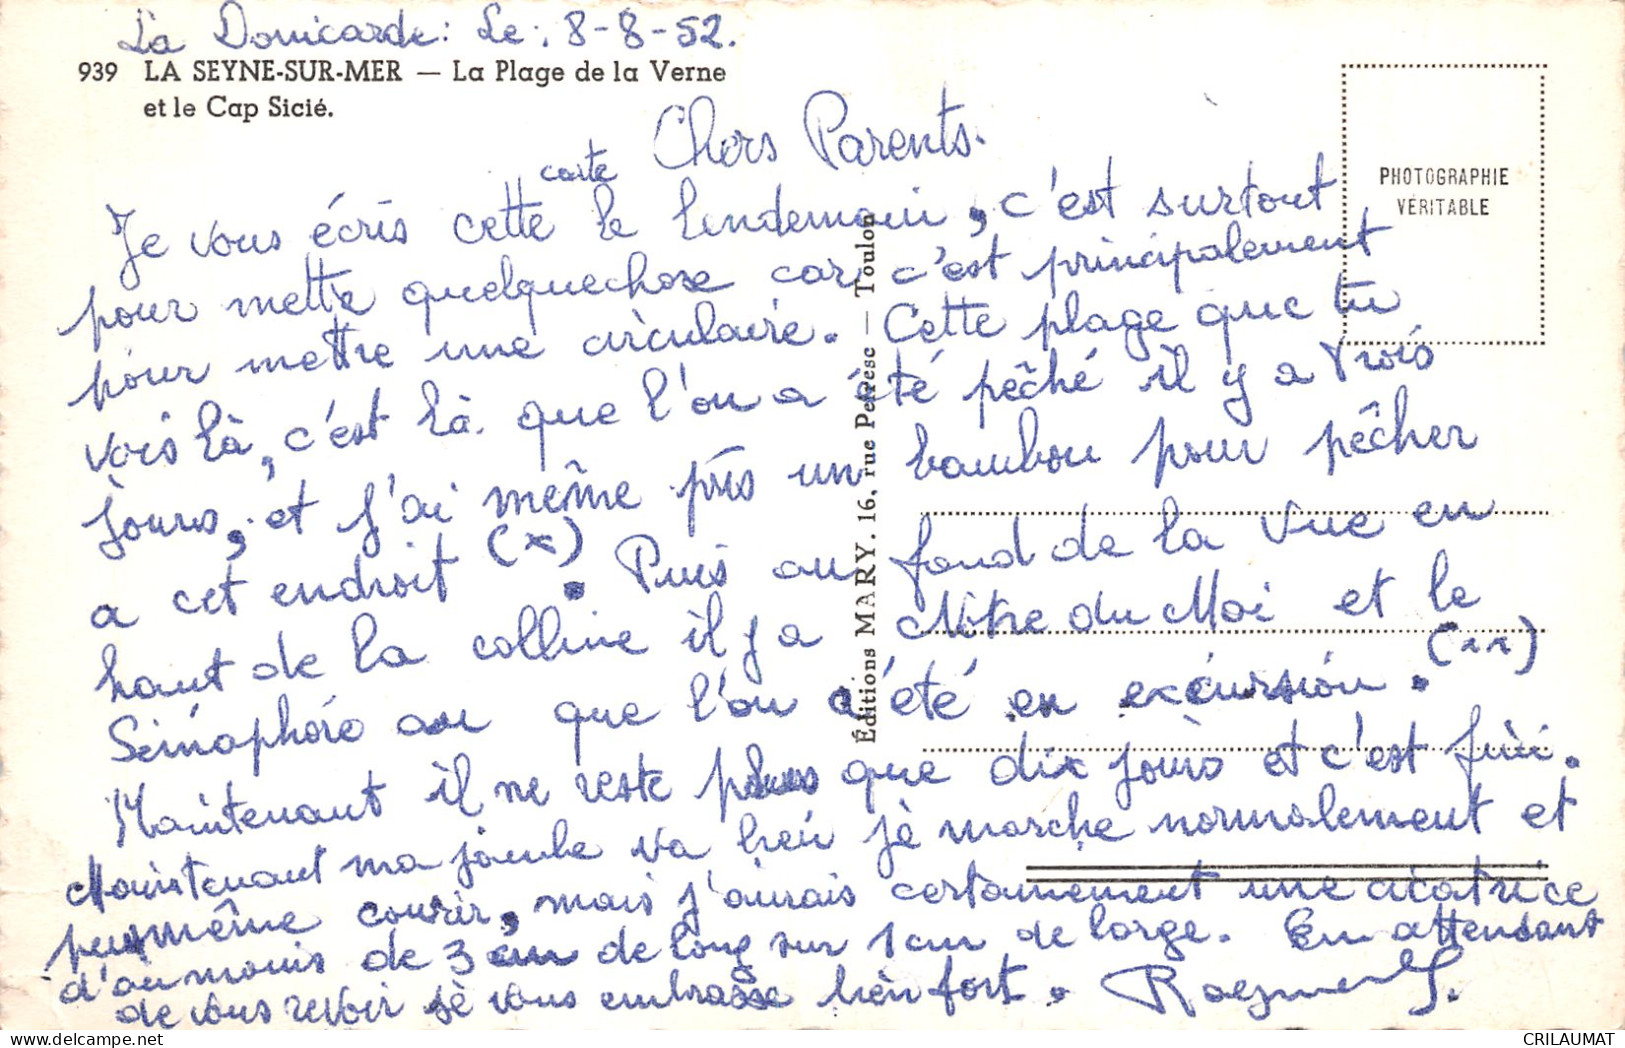 La Domicarde: Le: 8-8-52.
939 LA SEYNE-SUR-MER — La Plage de la Verne
et le Cap Sicié.
PHOTOGRAPHIE
VÉRITABLE
Éditions MARY. 16, rue Peirese — Toulon
Chers Parents.
carte
Je vous écris cette le lendemain, c'est surtout
pour mettre quelquechose car c'est principalement
pour mettre une circulaire. Cette plage que tu
vois là, c'est là que l'on a été pêché il y a trois
jours, et j'ai même pris un bambou pour pêcher
a cet endroit (x). Puis au fond de la vue en
haut de la colline il y a Notre du Mai et le
Sémaphore ou que l'on a été en excursion. (xx)
Maintenant il ne reste plus que dix jours et c'est fini.
Maintenant ma jambe va bien je marche normalement et
peus même courir, mais j'aurais certainement une cicatrice
d'au moins de 3 cm de long sur 1 cm de large. En attendant
de vous revoir je vous embrasse bien fort.